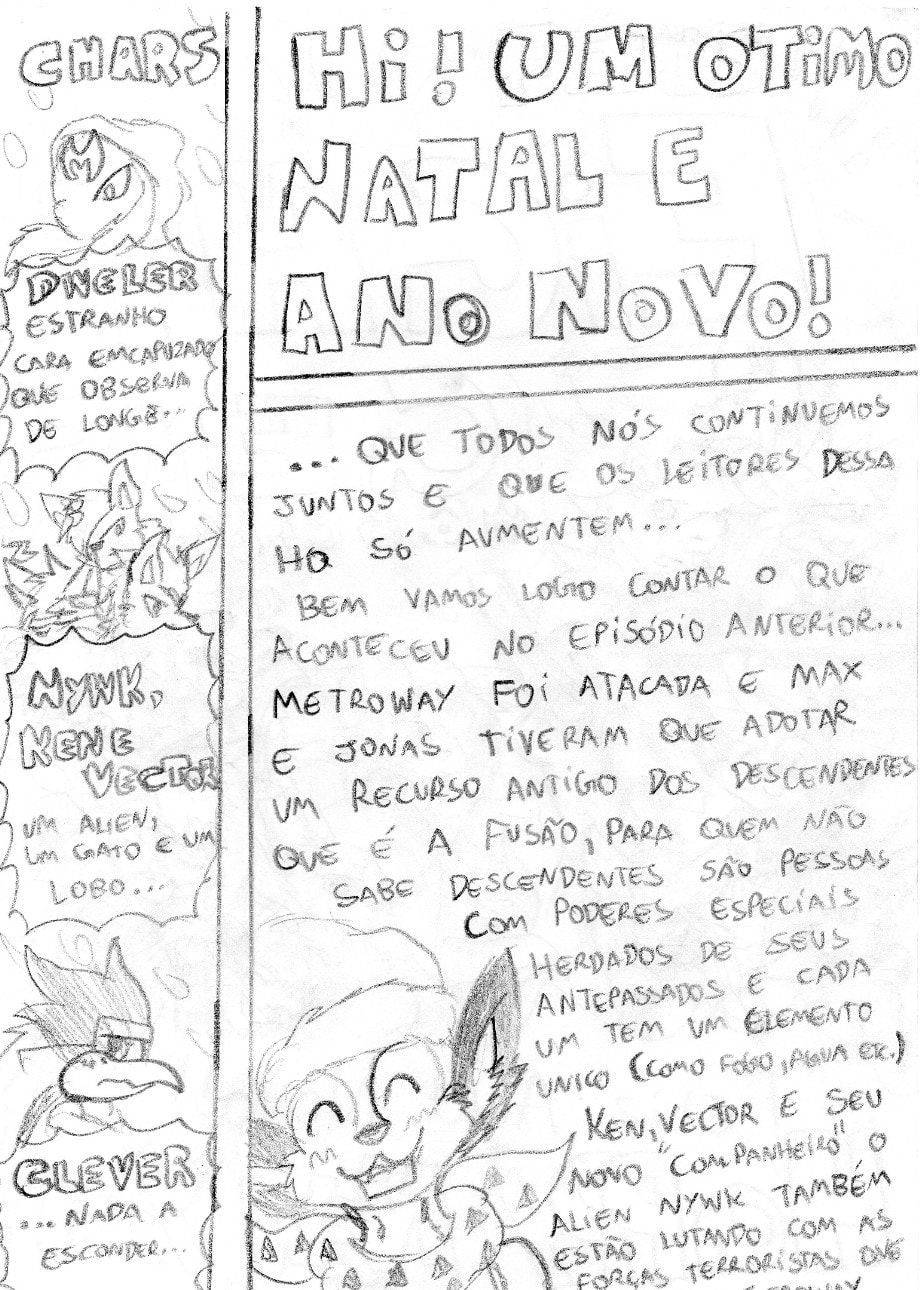 CHARS
DWELER
ESTRANHO
CARA EMCAPUZADO
QUE OBSERVA
DE LONGE...
NYWK,
KEN E
VECTOR
UM ALIEN,
UM GATO E UM
LOBO...
CLEVER
...NADA A
ESCONDER...
Hi! UM OTiMO
NATAL E
ANO NOVO!
... QUE TODOS NÓS CONTiNUEMOS
JUNTOS E QUE OS LEITORES DESSA
HQ SÓ AUMENTEM...
BEM VAMOS LOGO CONTAR O QUE
ACONTECEU NO EPISÓDIO ANTERIOR...
METROWAY FOi ATACADA E MAX
E JONAS TiVERAM QUE ADOTAR
UM RECURSO ANTIGO DOS DESCENDENTES
QUE É A FUSÃO, PARA QUEM NÃO
SABE DESCENDENTES SÃO PESSOAS
COM PODERES ESPECiAiS
HERDADOS DE SEUS
ANTEPASSADOS E CADA
UM TEM UM ELEMENTO
UNICO (COMO FOGO, AGUA ETC.)
KEN, VECTOR E SEU
NOVO "COMPANHEIRO" O
ALIEN NYWK TAMBÉM
ESTÃO LUTANDO COM AS
FORÇAS TERRORISTAS QUE